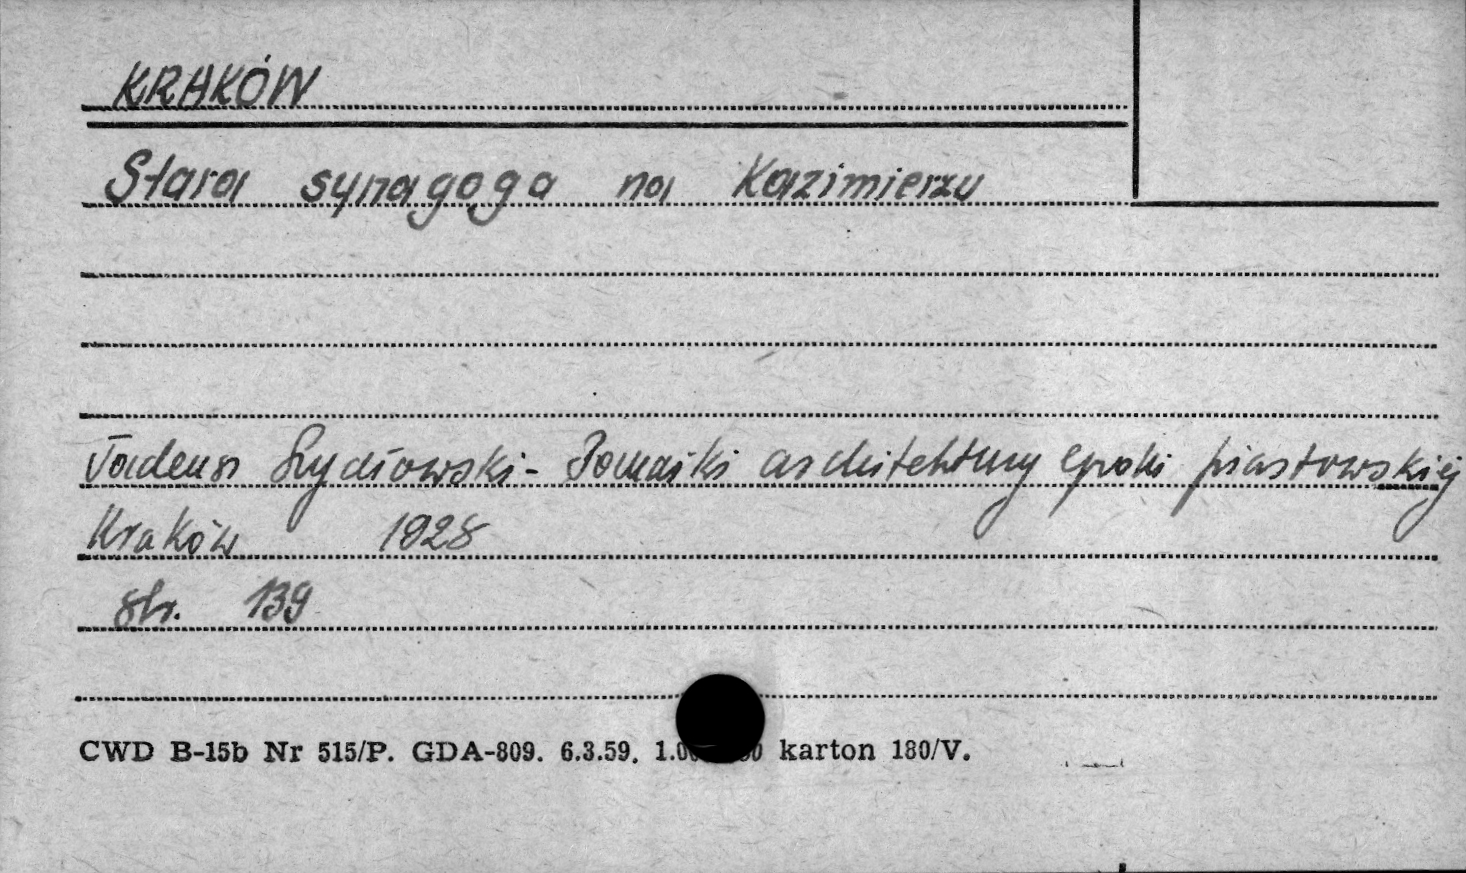 KRAKÓW
Stara synagoga na Kazimierzu
Tadeusz Szydłowski - Pomniki architektury epoki piastowskiej
Kraków 1928
str. 139
CWD B-15b Nr 515/P. GDA-809. 6.3.59. karton 180/V.